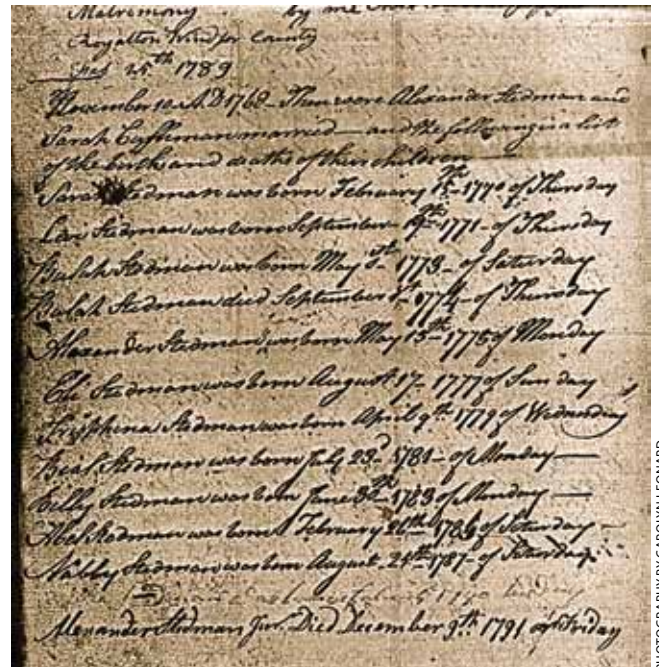 Matrimony by me
Royalton Windsor County
25th 1789
November 10 A.D 1768 Then were Alexander Stedman and
Sarah Cushman married and the following is a list
of the birth and deaths of their children
Sarah Stedman was born February 15 1770 of Thursday
Levi Stedman was born September 19th 1771 of Thursday
Bulah Stedman was born May 1773 of Saturday
Bulah Stedman died September 1774 of Thursday
Alexander Stedman was born May 15th 1775 of Monday
Eli Stedman was born August 17 1777 of Sunday
Tryphena Stedman was born April 9th 1779 of Wednesday
Stedman was born July 23d 1781 of Monday
Billy Stedman was born June 1783 of Monday
Abel Stedman was born February of Saturday
Nabby Stedman was born August 1787 of Saturday
Alexander Stedman Jur. Died December 9th 1791 of Friday
PHOTOGRAPHY BY CAROLYN LEONARD